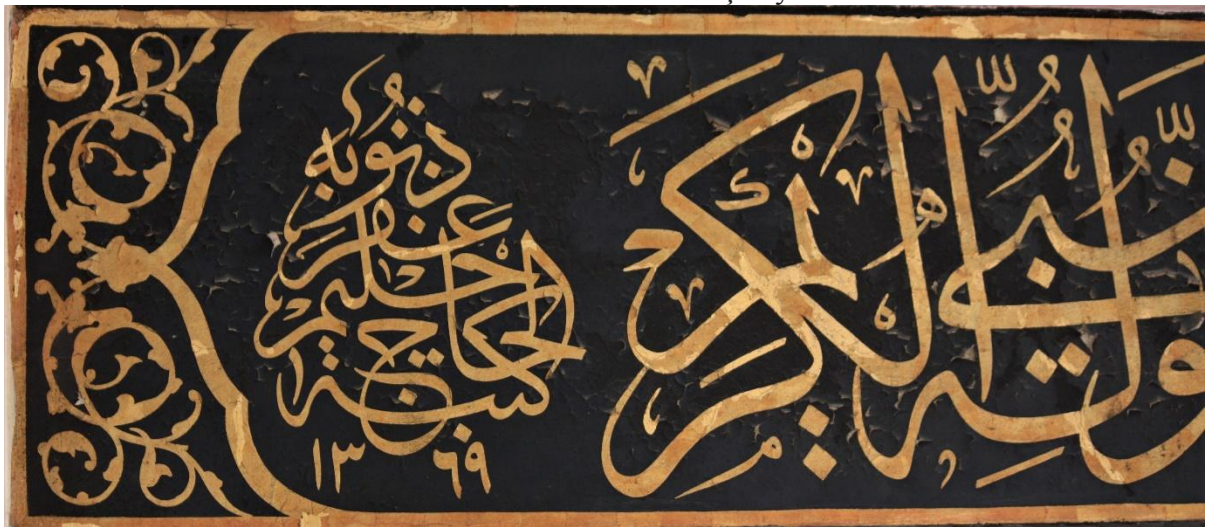 وله النبي الكريم
كتبه الحاج حليم غفر ذنوبه
١٣٦٩